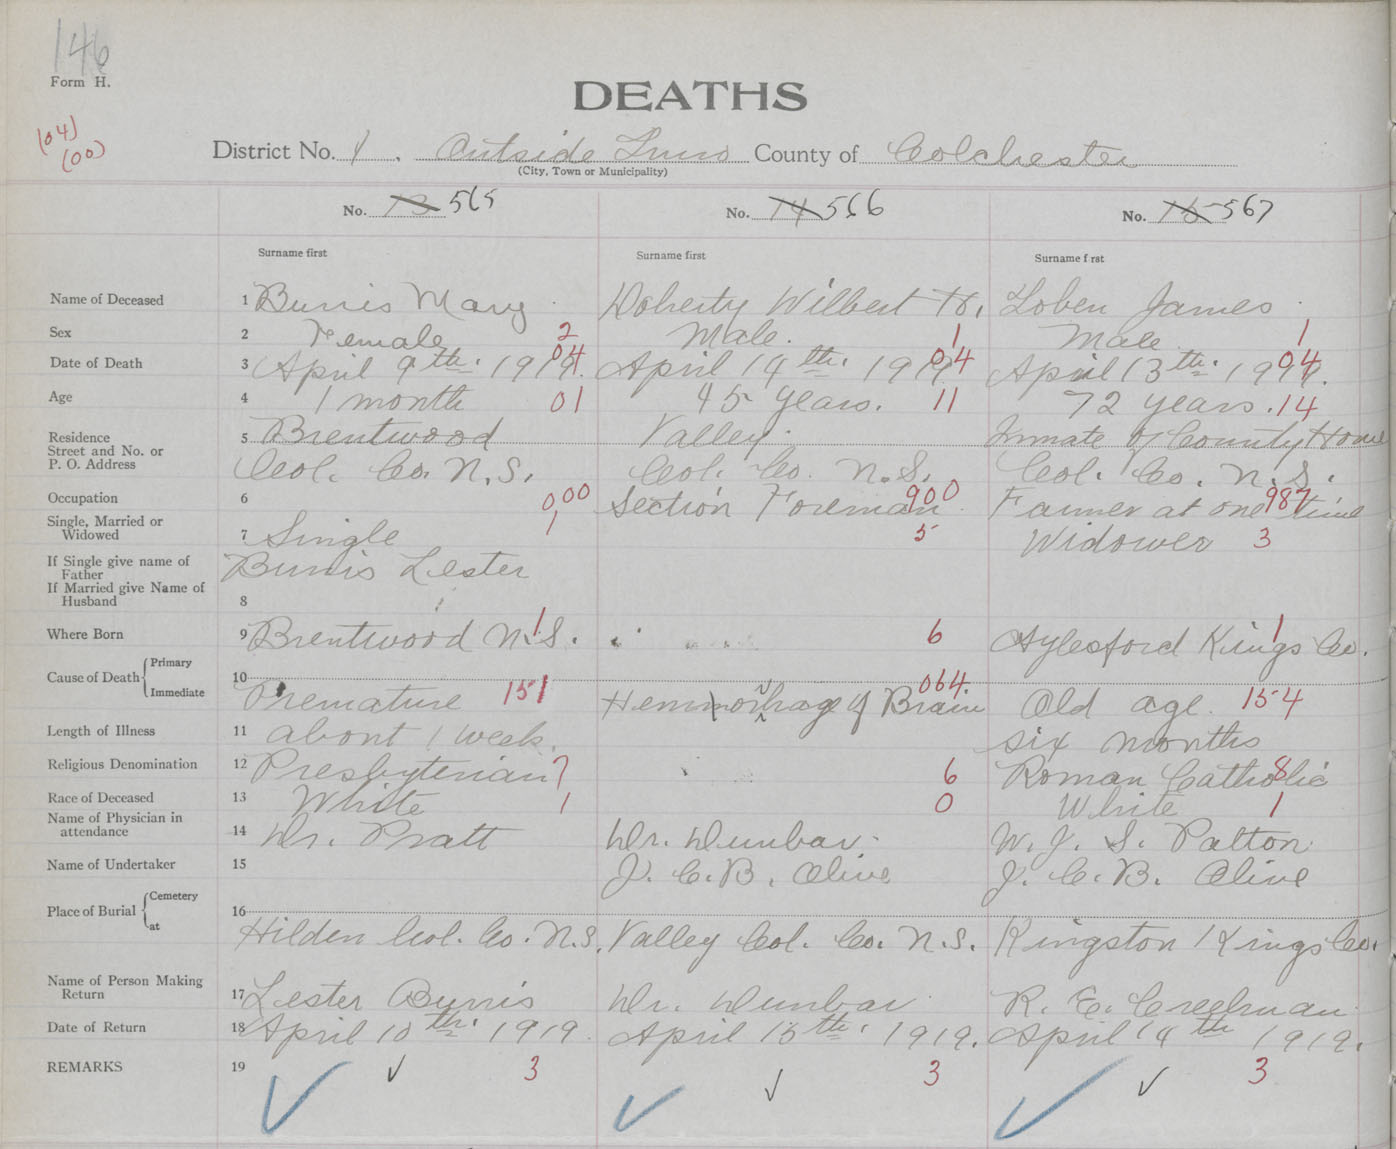 146
Form H.
DEATHS
(04)
(00)
District No. 1. Outside Truro County of Colchester
(City, Town or Municipality)
No. 13 565 No. 14 566 No. 15 567
Surname first Surname first Surname first
Name of Deceased 1 Burris Mary Doherty Wilbert H. Loben James
Sex 2 Female 2 Male. 1 Male 1
Date of Death 3 April 9th. 1919. 04 April 14th. 1919 04 April 13th. 1919. 04
Age 4 1 month 01 45 years. 11 72 years. 14
Residence
Street and No. or
P. O. Address
5 Brentwood Valley. Inmate of County Home
Col. Co. N.S. Col. Co. N.S. Col. Co. N.S.
Occupation 6 000 Section Foreman 900 Farmer at one time 987
Single, Married or
Widowed
7 Single 1 5 Widower 3
If Single give name of
Father
If Married give Name of
Husband
8
Burris Lester
Where Born 9 Brentwood N.S. 1 6 Aylesford Kings Co. 1
Cause of Death Primary
Immediate
10
Premature 151 Hemmorhage of Brain 064 Old age. 154
Length of Illness 11 about 1 week. six months
Religious Denomination 12 Presbyterian 7 6 Roman Catholic 8
Race of Deceased 13 White 1 0 White 1
Name of Physician in
attendance
14 Dr. Pratt Dr. Dunbar. W. J. S. Patton
Name of Undertaker 15 J. C. B. Olive J. C. B. Olive
Place of Burial Cemetery
at
16
Hilden Col. Co. N.S. Valley Col. Co. N.S. Kingston Kings Co.
Name of Person Making
Return
17 Lester Burris Dr. Dunbar R. E. Creelman
Date of Return 18 April 10th. 1919. April 15th. 1919. April 14th 1919.
REMARKS 19 3 3 3